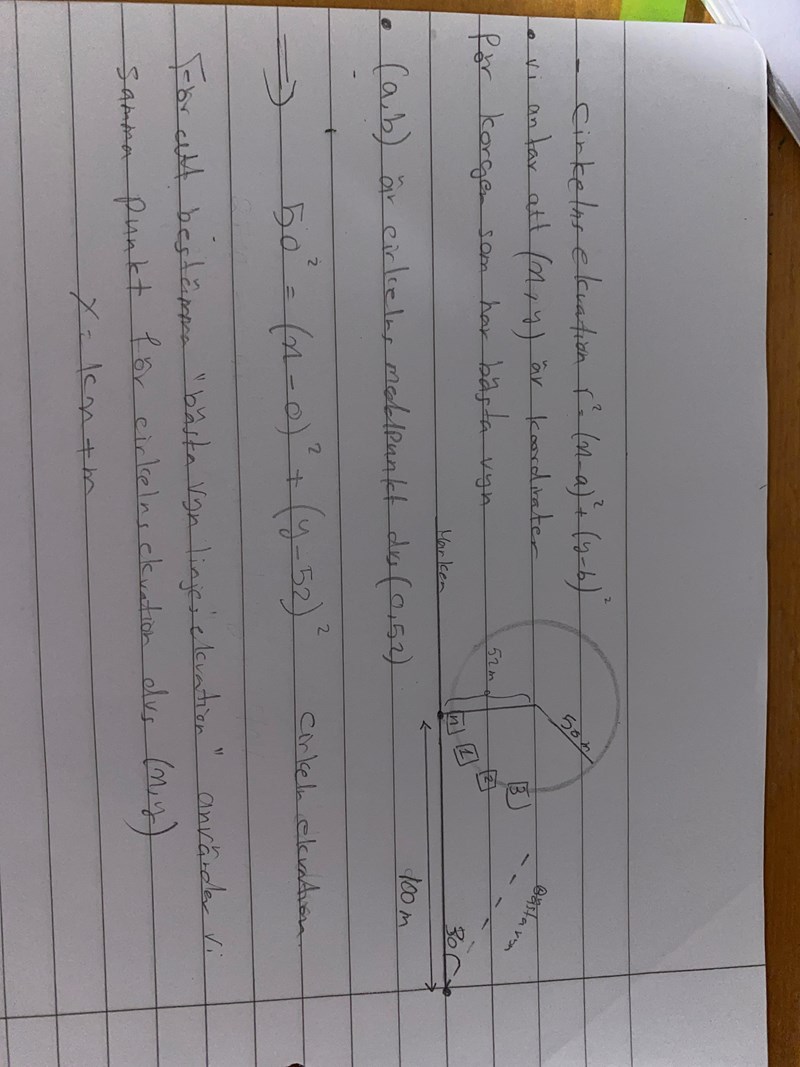 - Cirkelns ekvation r² = (x-a)² + (y-b)²
• vi antar att (x,y) är koordinater
för korgen som har bästa vyn
50 m
52 m
n 1 2 3
Bästa vyn
Marken
30°
100 m
• (a,b) är cirkelns medelpunkt dvs (0,52)
=> 50² = (x-0)² + (y-52)² cirkeln ekvation
För att bestämma "bästa vyn linjes ekvation" använder vi
samma punkt för cirkelns ekvation dvs (x,y)
y = kx + m